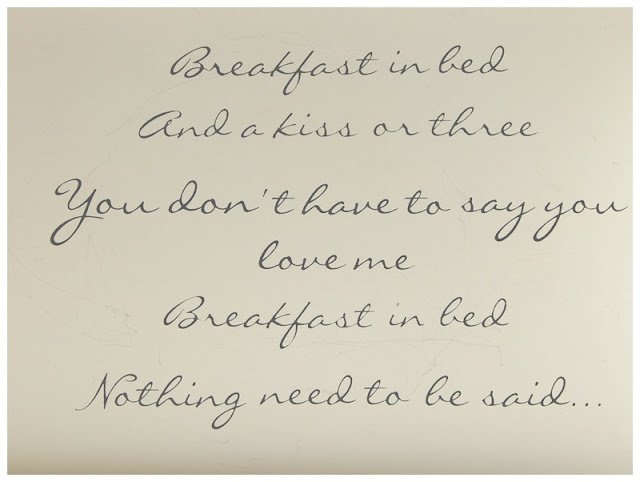 Breakfast in bed
And a kiss or three
You don't have to say you
love me
Breakfast in bed
Nothing need to be said...